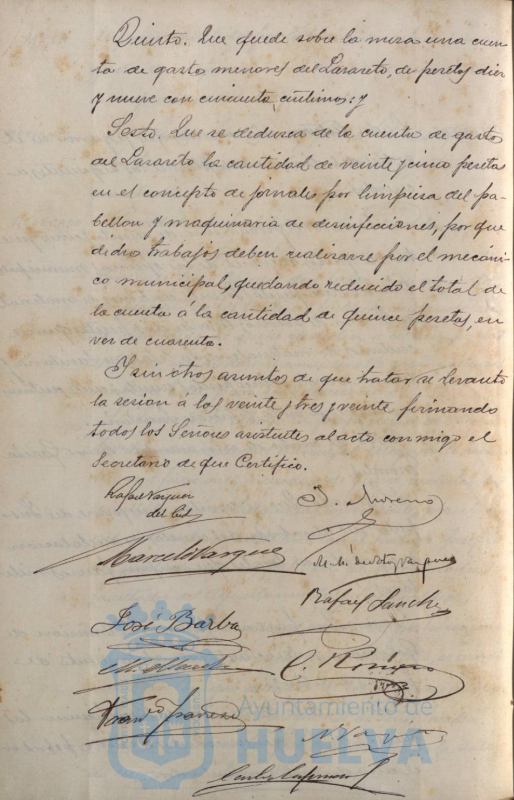 Quinto. Que quede sobre la mesa una cuen-
ta de gasto menores del Lazareto, de pesetas diez
y nueve con cincuenta céntimos: y
Sesto. Que se deduzca de la cuenta de gasto
del Lazareto la cantidad de veinte y cinco pesetas
en el concepto de jornales por limpieza del pa-
bellon y maquinaria de desinfecciones, por que
dichos trabajos deben realizarse por el mecáni-
co municipal, quedando reducido el total de
la cuenta á la cantidad de quince pesetas, en
vez de cuarenta.
Y sin otros asuntos de que tratar se levantó
la sesion á las veinte y tres y veinte firmando
todos los Señores asistentes al acto conmigo el
Secretario de que Certifico.
Rafael Vazquez
del
J. Moreno
Marceli Vazquez
Rafael Sanchez
José Barba
M.
C. Romero
Ayuntamiento de
HUELVA